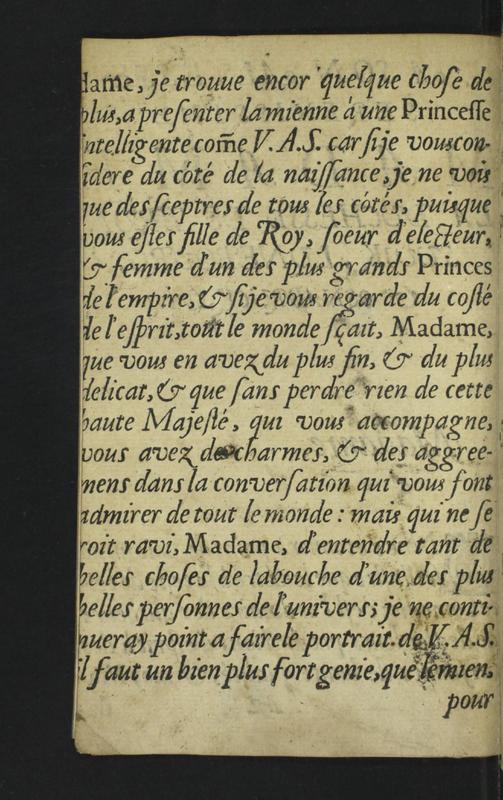 dame, je trouue encor quelque choſe de
plus, a preſenter la mienne à une Princeſſe
intelligente com̃e V. A. S. car ſi je vous con-
ſidere du côté de la naiſſance, je ne vois
que des ſceptres de tous les côtés, puisque
vous eſtes fille de Roy, ſoeur d'electeur,
& femme d'un des plus grands Princes
de l'empire, & ſi je vous regarde du coſté
de l'eſprit, tout le monde ſçait, Madame,
que vous en avez du plus fin, & du plus
delicat, & que ſans perdre rien de cette
haute Majeſté, qui vous accompagne,
vous avez de charmes, & des aggree-
mens dans la converſation qui vous font
admirer de tout le monde : mais qui ne ſe
roit ravi, Madame, d'entendre tant de
belles choſes de labouche d'une des plus
belles perſonnes de l'univers; je ne conti-
nueray point a fairele portrait de V. A. S.
il faut un bien plus fort genie, que lemien,
pour